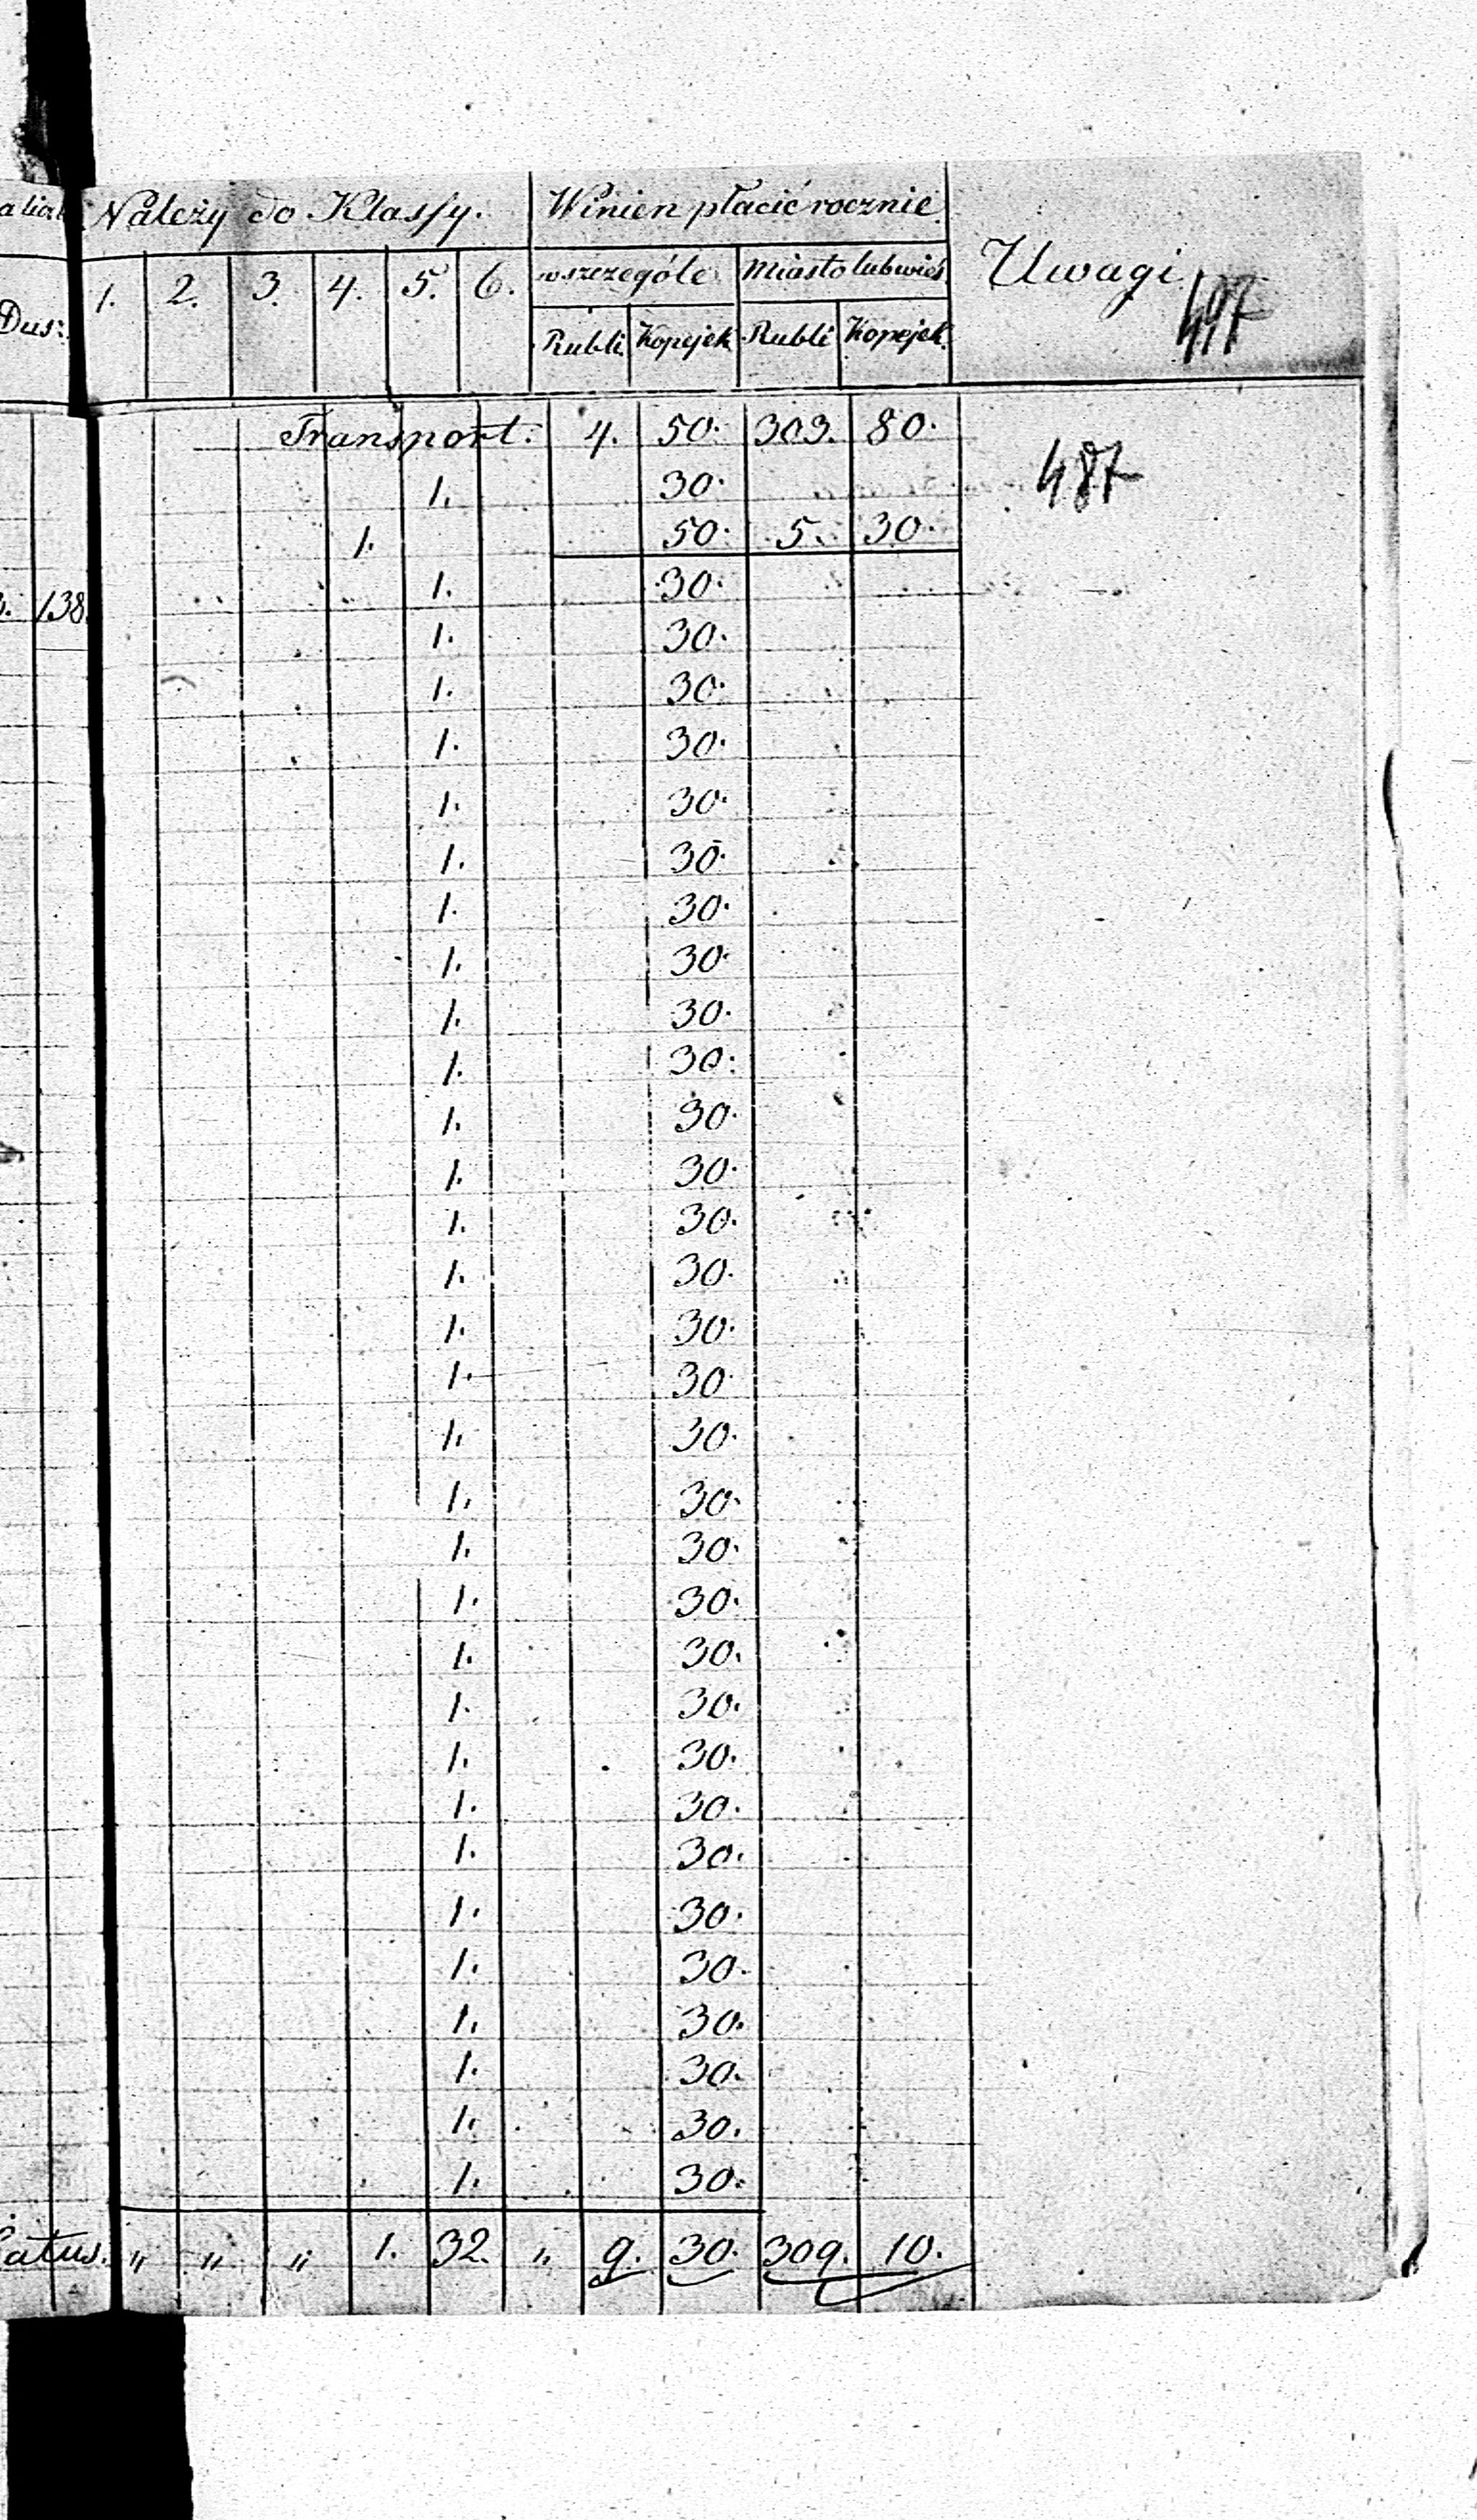 Należy do Klassy. Winien płacić rocznie Uwagi
w szczególe Miasto lub wieś
1. 2. 3. 4. 5. 6.
Dusz. Rubli Kopejek Rubli Kopejek
Transport. 4. 50. 303. 80.
487
1. 30.
1. 50. 5. 30.
138. 1. 30.
1. 30.
1. 30.
1. 30.
1. 30.
1. 30.
1. 30.
1. 30.
1. 30.
1. 30.
1. 30.
1. 30.
1. 30.
1. 30.
1. 30.
1. 30.
1. 30.
1. 30.
1. 30.
1. 30.
1. 30.
1. 30.
1. 30.
1. 30.
1. 30.
1. 30.
1. 30.
1. 30.
1. 30.
1. 30.
1. 30.
Latus. „ „ „ 1. 32. „ 9. 30. 309. 10.